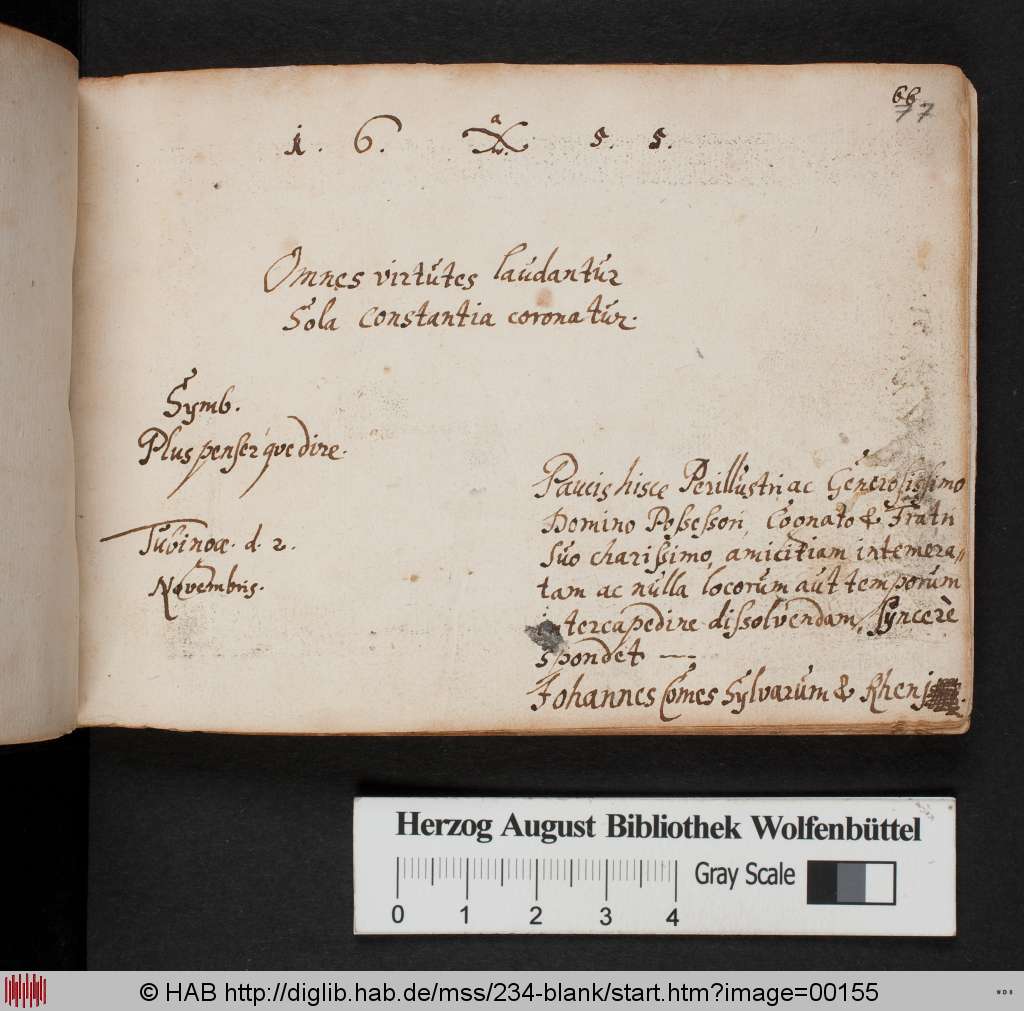 66
77
1. 6. 5. 5.
Omnes virtutes laudantur
Sola constantia coronatur.
Symb.
Plus penser que dire.
Tubingæ. d. 2.
Novembris.
Paucis hisce Perillustri ac Generosissimo
Domino Possessori, Cognato & Fratri
suo charissimo, amicitiam intemera„
tam ac nulla locorum aut temporum
intercapedine dissolvendam, syncerè
spondet —
Johannes Comes Sylvarum & Rheni
Herzog August Bibliothek Wolfenbüttel
Gray Scale
0 1 2 3 4
© HAB http://diglib.hab.de/mss/234-blank/start.htm?image=00155